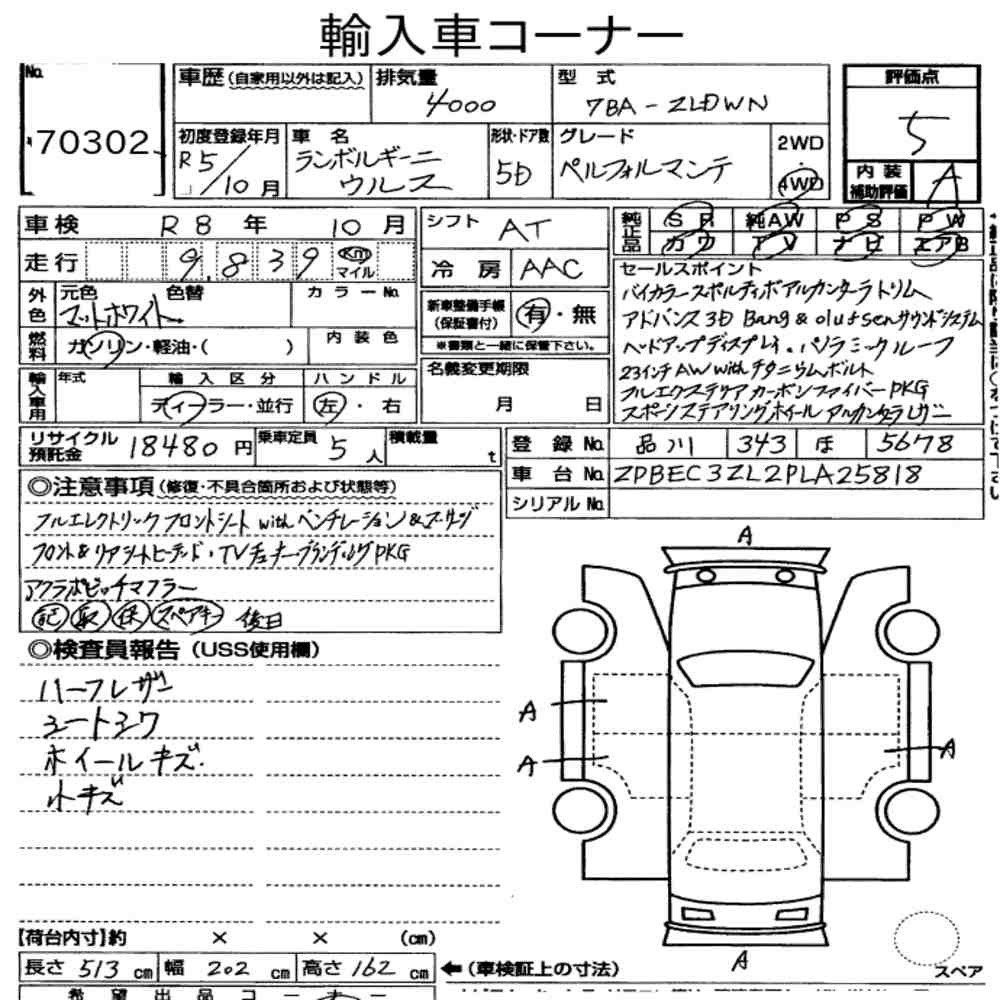 輸入車コーナー
No.
70302
車歴 (自家用以外は記入)
排気量
4000
型 式
7BA-ZLDWN
評価点
5
初度登録年月
R5/10月
車 名
ランボルギーニ
ウルス
形状・ドア数
5D
グレード
ペルフォルマンテ
2WD
・
4WD
内 装
補助評価
A
車検
R8年 10月
シフト
AT
純正品
SR 純AW PS PW
カワ TV ナビ エアB
走行
9,839
Km
マイル
冷 房
AAC
セールスポイント
バイカラースポルティボアルカンターラトリム
アドバンス3D Bang & olufsenサウンドシステム
ヘッドアップディスプレイ・パノラミックルーフ
23インチAWwithチタニウムボルト
フルエクステリアカーボンファイバーPKG
スポーツステアリングホイール アルカンターラレザー
外色
元色 色替
マットホワイト
カラーNo.
新車整備手帳
(保証書付)
有・無
※書類と一緒に保管下さい。
燃料
ガソリン・軽油・( )
内 装 色
名義変更期限
月 日
輸入車用
年式
輸 入 区 分
ディーラー・並行
ハ ン ド ル
左・右
リサイクル
預託金
18480円
乗車定員
5人
積載量
t
登 録 No.
品川 343 ほ 5678
車 台 No.
ZPBEC3ZL2PLA25818
シリアルNo.
◎注意事項(修復・不具合箇所および状態等)
フルエレクトリックフロントシート withベンチレーション&マッサージ
フロント&リアシートヒーテッド・TVチューナーブランディングPKG
アクラポビッチマフラー
記 取 保 スペアキー 後日
◎検査員報告(USS使用欄)
ハーフレザー
シートシワ
ホイールキズ.
小キズ
A
A
A
A
A
【荷台内寸】約 × × (cm)
長さ 513 cm 幅 202 cm 高さ 162 cm
←(車検証上の寸法)
スペア
希 望 出 品 コ ー ナ ー